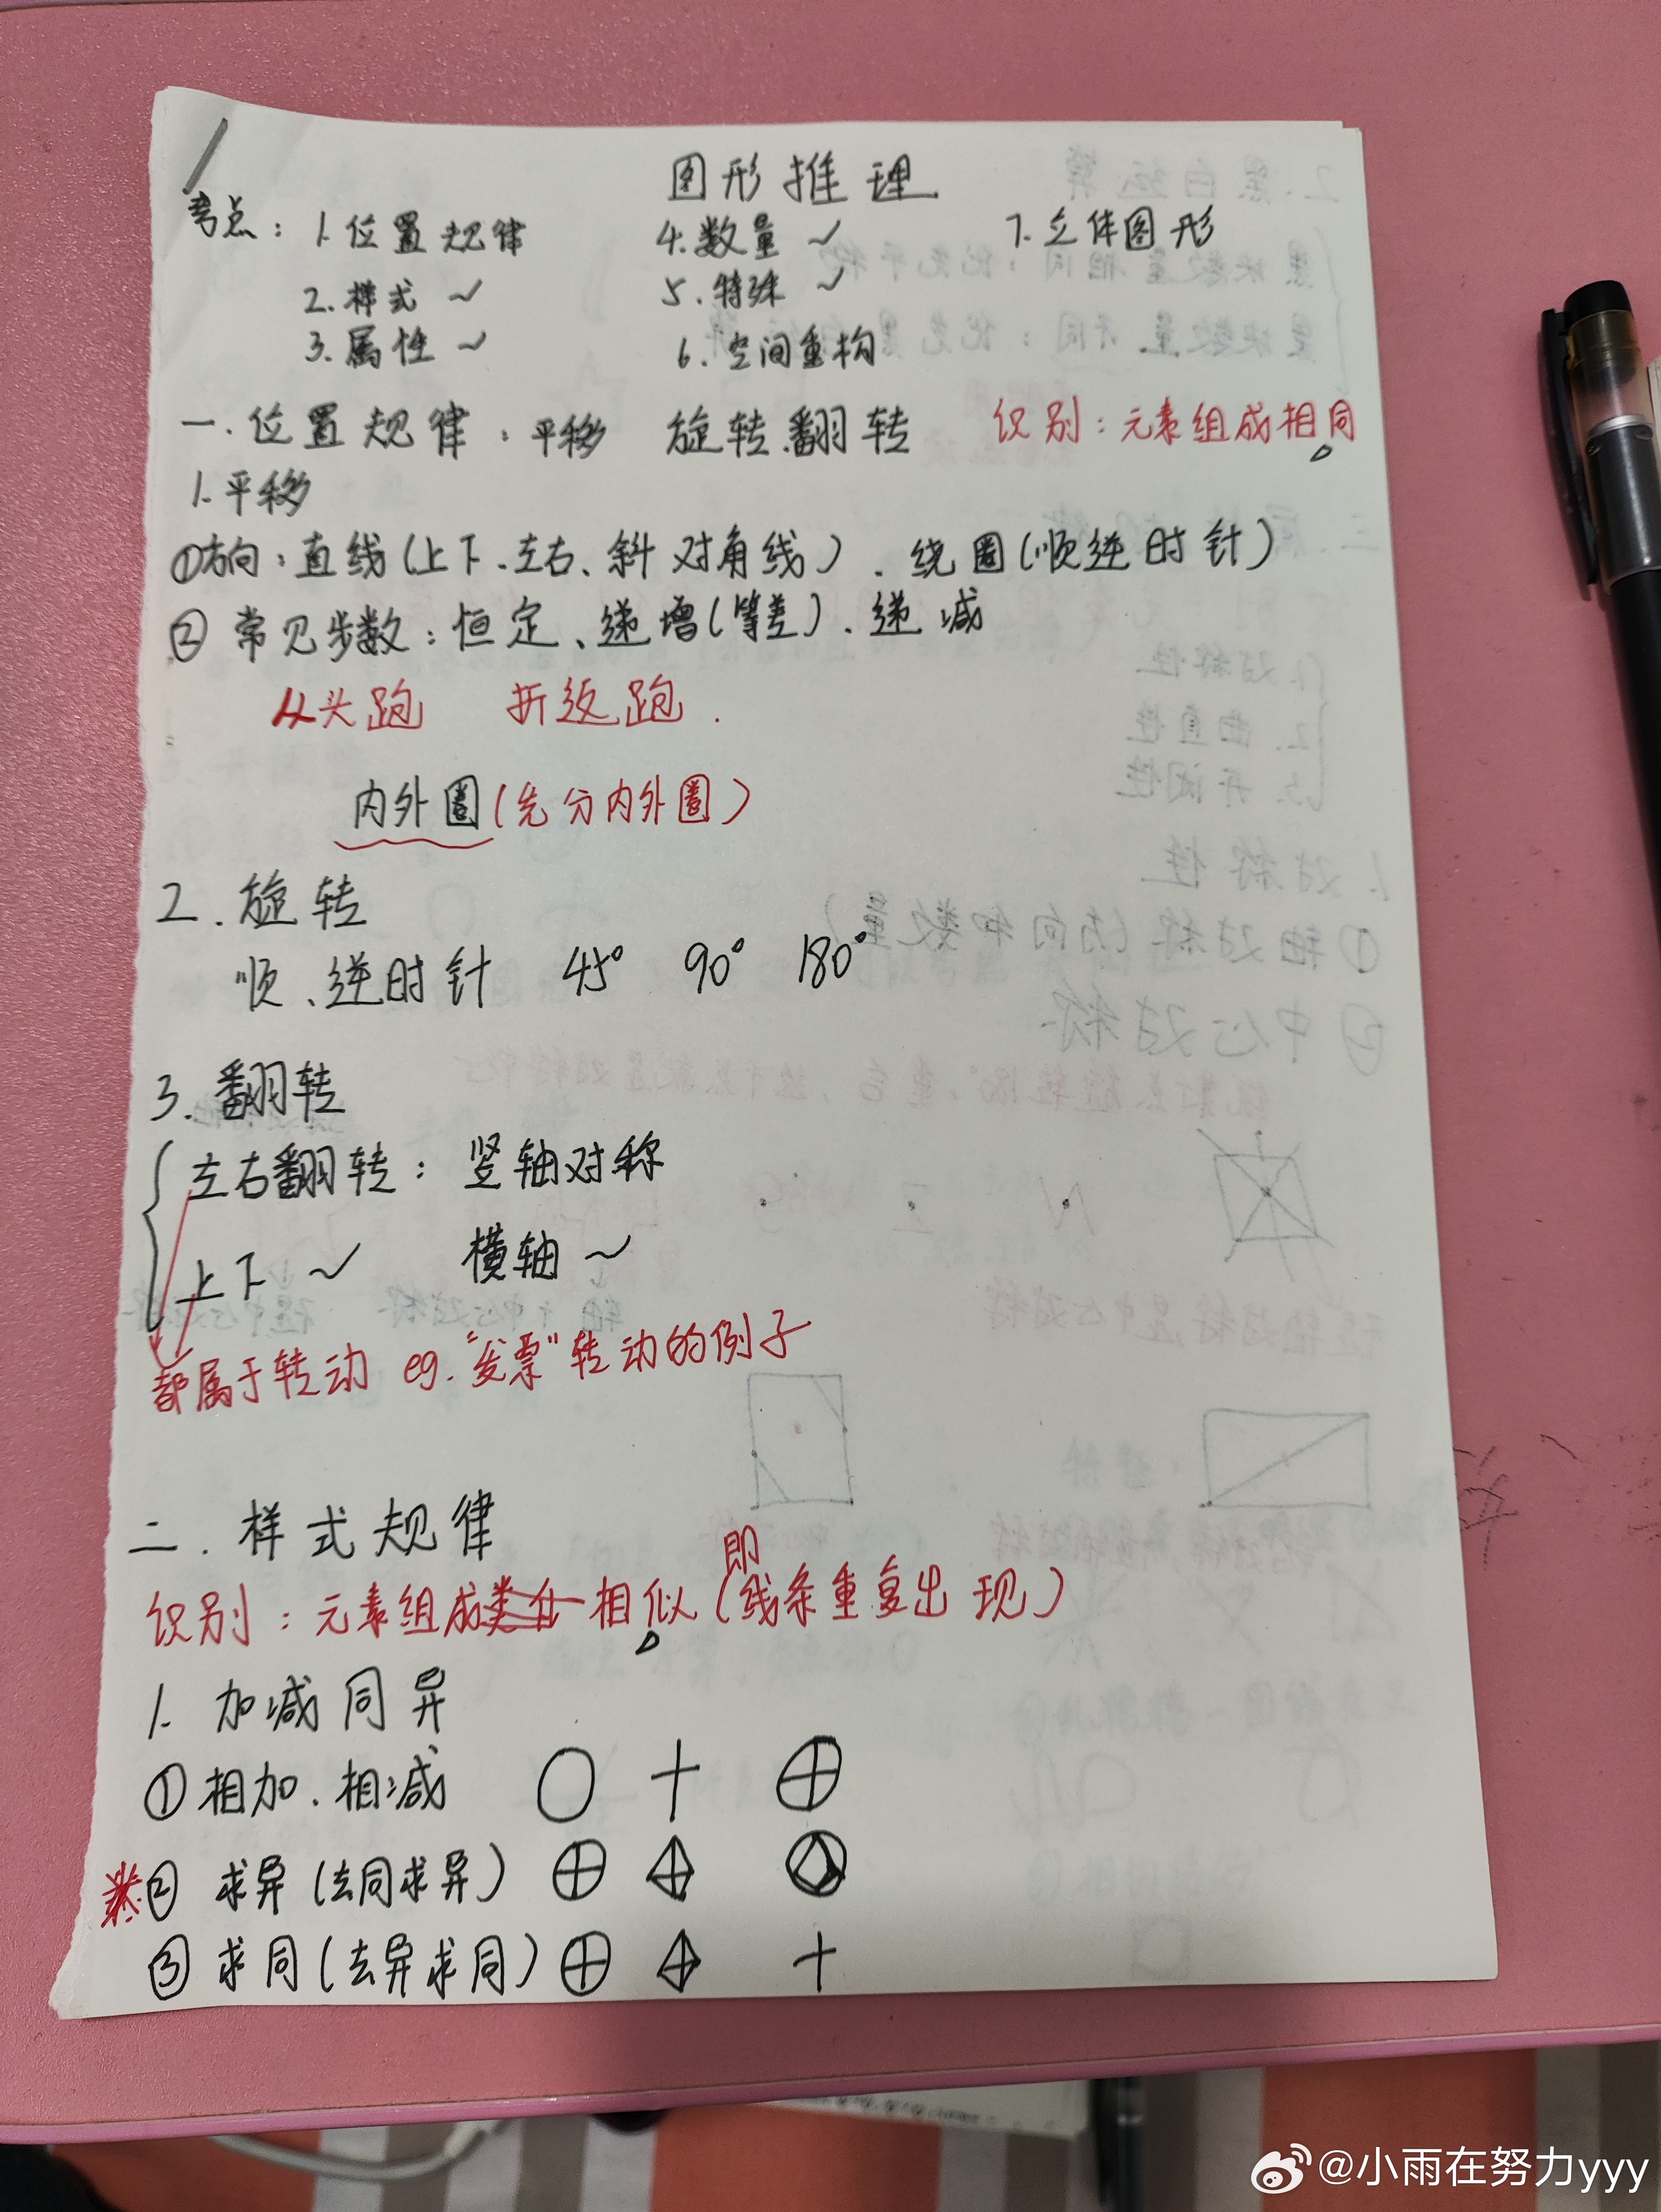 图形推理
考点：1.位置规律 4.数量～ 7.立体图形
2.样式～ 5.特殊～
3.属性～ 6.空间重构
一.位置规律：平移 旋转.翻转 识别：元素组成相同
1.平移
①方向：直线（上下、左右、斜对角线）、绕圈（顺逆时针）
② 常见步数：恒定、递增（等差）、递减
从头跑 折返跑.
内外圈（先分内外圈）
2.旋转
顺、逆时针 45° 90° 180°
3.翻转
左右翻转：竖轴对称
上下～ 横轴～
都属于转动 eg.“发票”转动的例子
二.样式规律
即
识别：元素组成相似（线条重复出现）
1.加减同异
①相加.相减
② 求异（去同求异）
③ 求同（去异求同）
@小雨在努力yyy